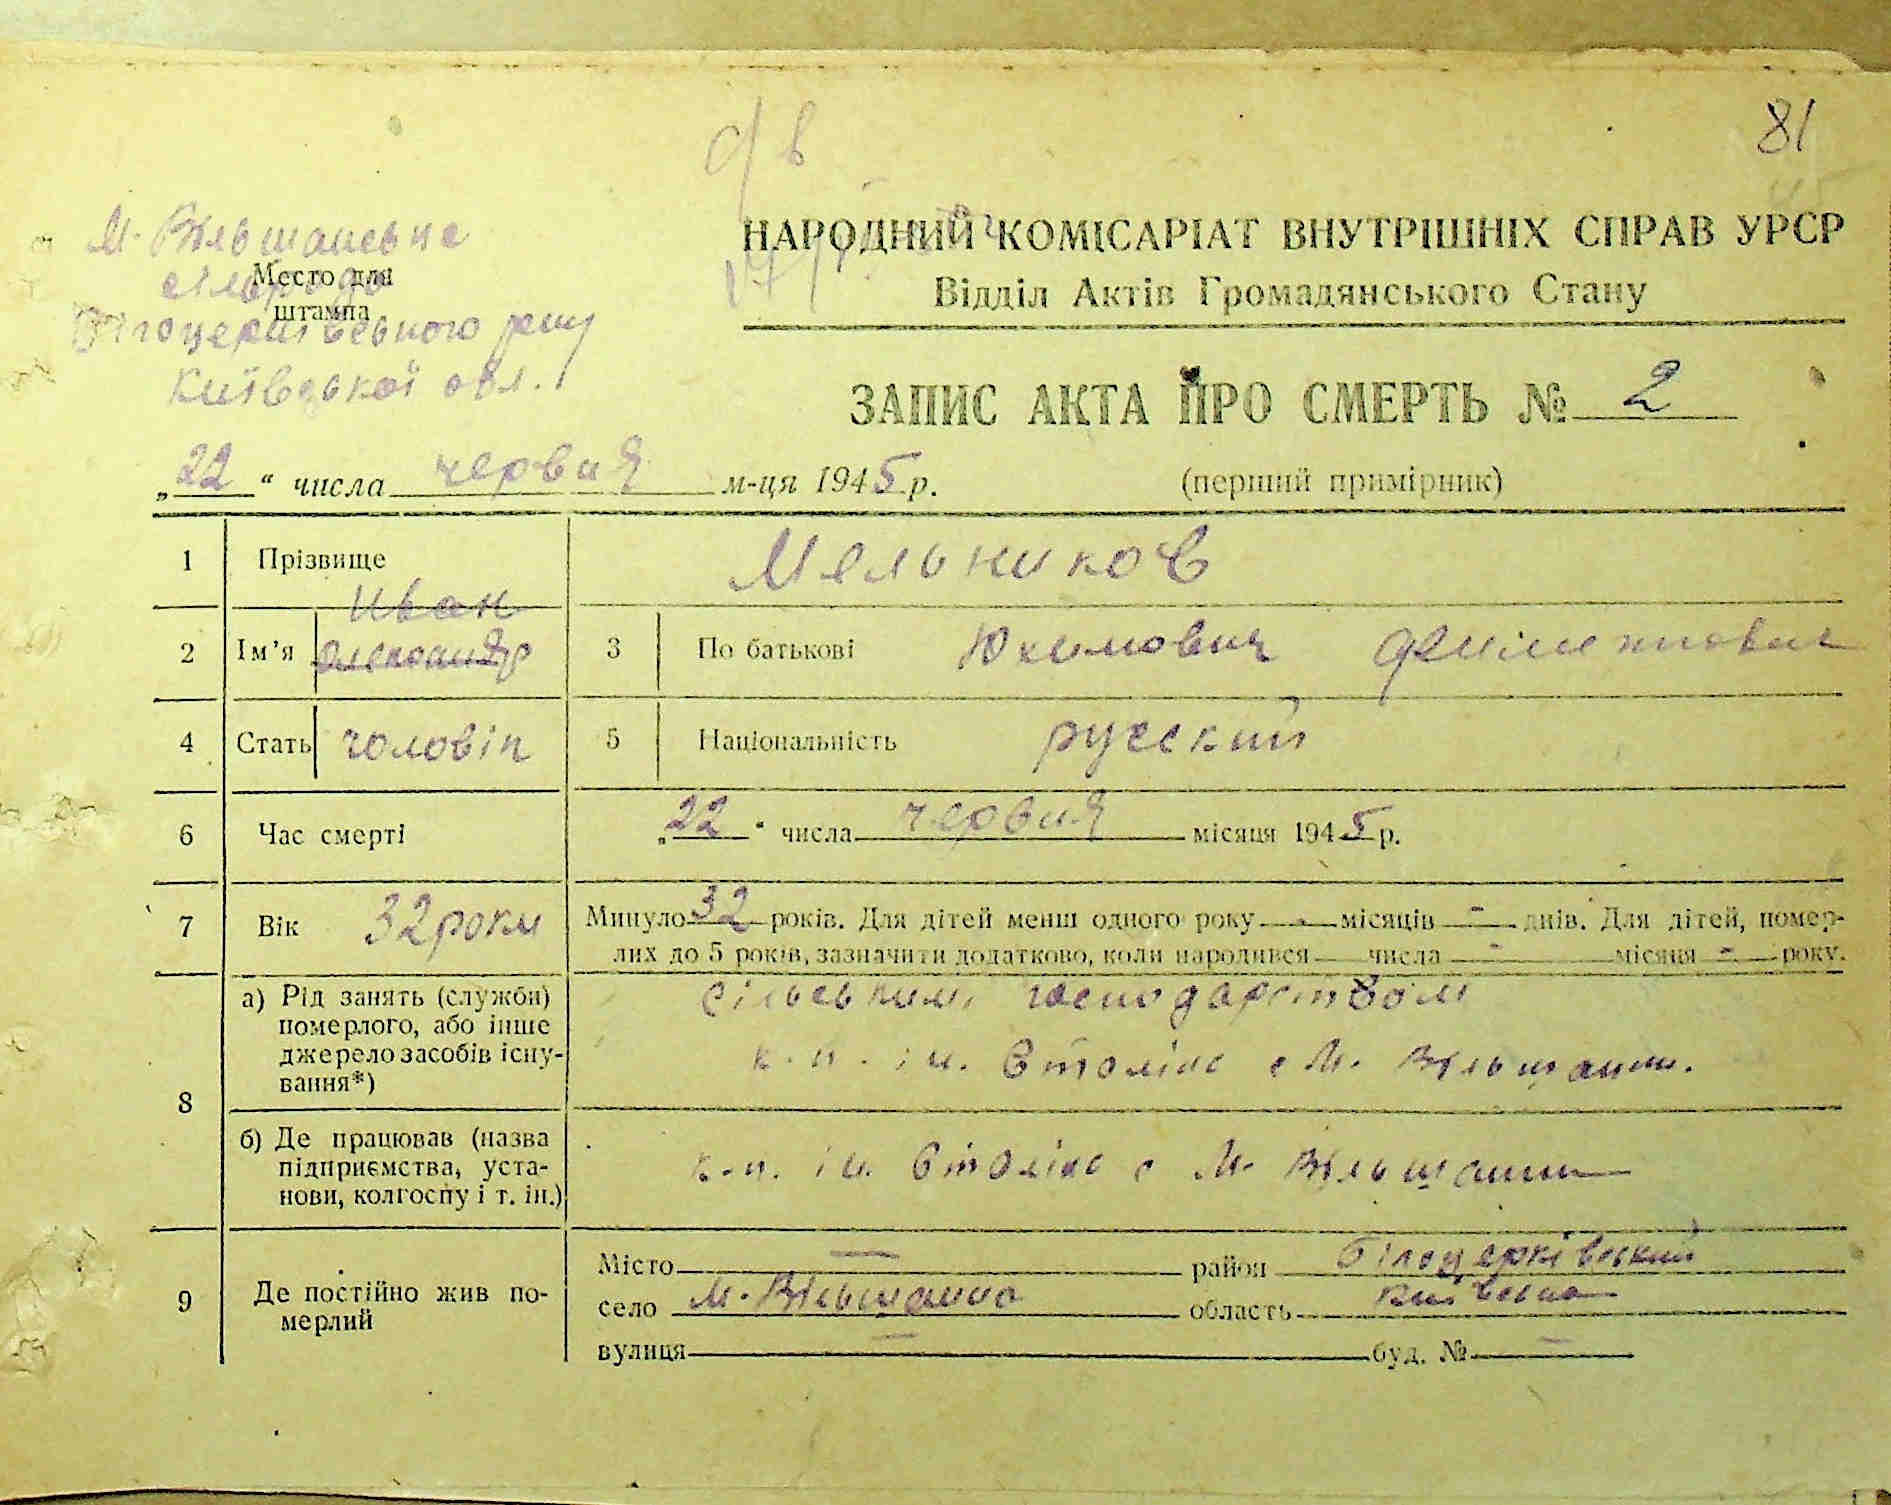 81
М. Вільшанське
сільрада
Место для
штампа
Білоцерківського рану
Київської обл.
НАРОДНИЙ КОМІСАРІАТ ВНУТРІШНІХ СПРАВ УРСР
Відділ Актів Громадянського Стану
ЗАПИС АКТА ПРО СМЕРТЬ № 2
„22“ числа червня м-ця 1945 р.
(перший примірник)
1 Прізвище Мельников
Иван
2 Ім’я Олександр 3 По батькові Юхимович
4 Стать чоловік 5 Національність русский
6 Час смерті „22“ числа червня місяця 1945 р.
7 Вік 32 роки Минуло 32 років. Для дітей менш одного року - місяців - днів. Для дітей, помер-
лих до 5 років, зазначити додатково, коли народився числа - місяця - року.
8 а) Рід занять (служби)
померлого, або інше
джерело засобів існу-
вання*)
сільським господарством
к. п. ім. Сталіна с М. Вільшанки.
б) Де працював (назва
підприємства, уста-
нови, колгоспу і т. ін.)
к-п. ім. Сталіна с М. Вільшанки
9 Де постійно жив по-
мерлий
Місто — район Білоцерківський
село М. Вільшанка область Київська
вулиця — буд. № —